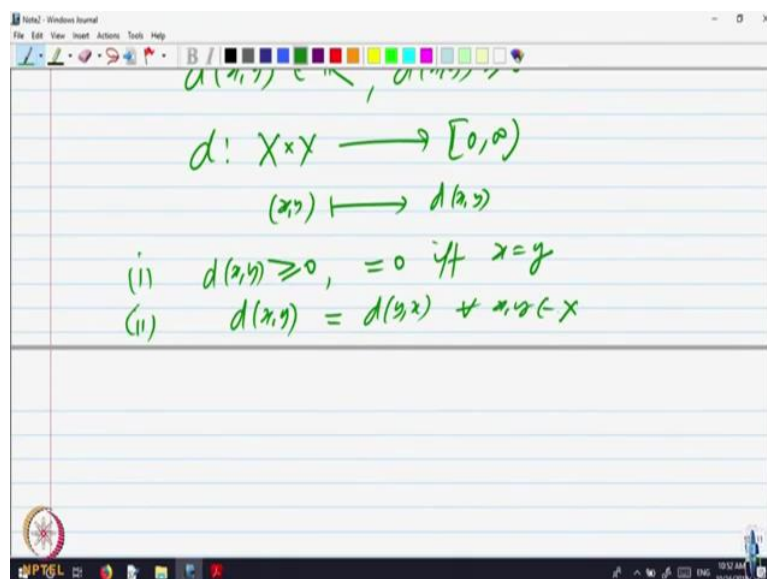 Note2 - Windows Journal
File Edit View Insert Actions Tools Help
B I
d(x,y) ∈ ℝ, d(x,y) ≥ 0
d: X×X ⟶ [0,∞)
(x,y) ⟼ d(x,y)
(i) d(x,y) ≥ 0, = 0 iff x = y
(ii) d(x,y) = d(y,x) ∀ x,y ∈ X
NPTEL
ENG 10:52 AM